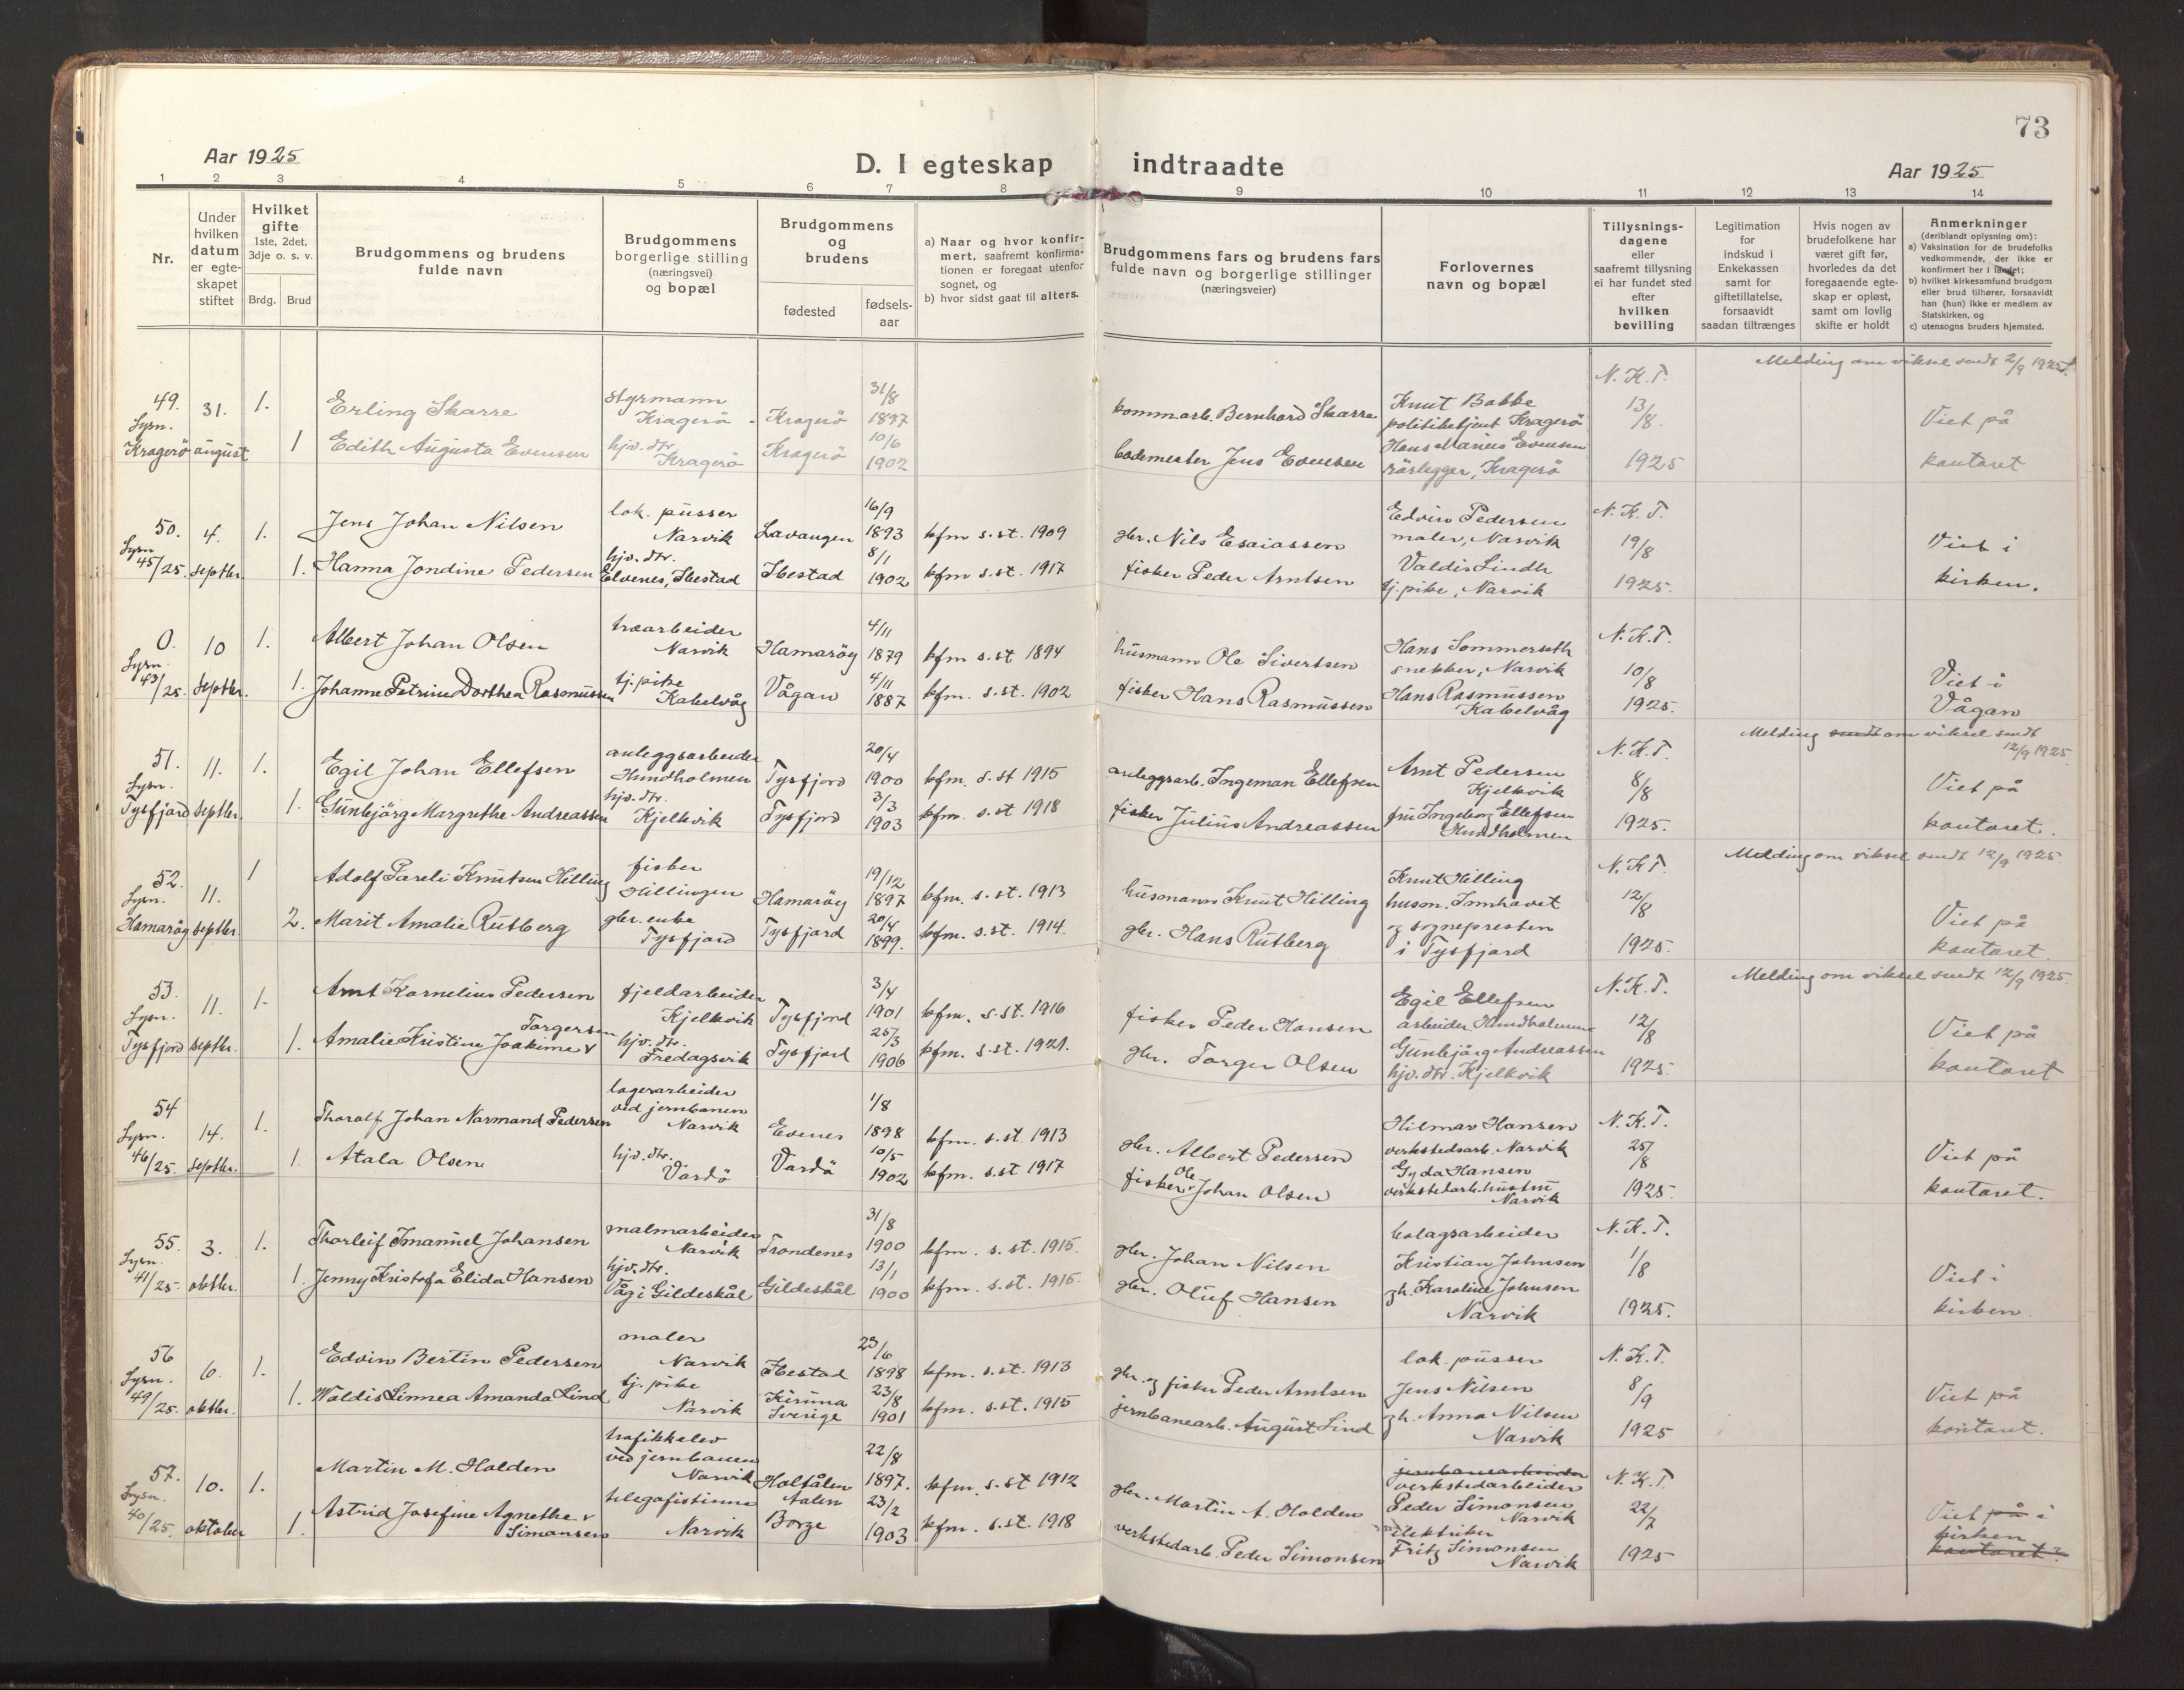 73
Aar 1925
D. I egteskap indtraadte
Aar 1925
1 2 3 4 5 6 7 8 9 10 11 12 13 14
Nr.
Under hvilken datum er egteskapet stiftet
Hvilket gifte
1ste, 2det, 3dje o. s. v.
Brdg. Brud
Brudgommens og brudens fulde navn
Brudgommens borgerlige stilling (næringsvei) og bopæl
Brudgommens og brudens
fødested
fødsels-aar
a) Naar og hvor konfirmert, saafremt konfirmationen er foregaat utenfor sognet, og
b) hvor sidst gaat til alters.
Brudgommens fars og brudens fars fulde navn og borgerlige stillinger (næringsveier)
Forlovernes navn og bopæl
Tillysningsdagene eller saafremt tillysning ei har fundet sted efter hvilken bevilling
Legitimation for indskud i Enkekassen samt for giftetillatelse, forsaavidt saadan tiltrænges
Hvis nogen av brudefolkene har været gift før, hvorledes da det foregaaende egteskap er opløst, samt om lovlig skifte er holdt
Anmerkninger
(deriblandt oplysning om):
a) Vaksination for de brudefolks vedkommende, der ikke er konfirmert her i landet;
b) hvilket kirkesamfund brudgom eller brud tilhører, forsaavidt han (hun) ikke er medlem av Statskirken, og
c) utensogns bruders hjemsted.
Melding om viksel sendt 2/9 1925
49. Lysn. Kragerö
31. august
1. Erling Skarre
styrmann Kragerö
Kragerö 31/8 1897
kommarb. Bernhard Skarre
1 Edith Augusta Evensen
hjv. dtr. Kragerö
Kragerö 10/6 1902
bademester Jens Evensen
Knut Bakke politibetjent Kragerö
Hans Marius Evensen rörlegger, Kragerö
N.K.T. 13/8. 1925
Viet på kontoret
50. Lysn. 45/25.
4. septbr.
1. Jens Johan Nilsen
lok. pusser Narvik
Lavangen 16/9 1893
kfm s. st. 1909
gbr. Nils Esaiassen
1. Hanna Jondine Pedersen
hjv. dtr. Elvenes, Ibestad
Ibestad 8/1 1902
kfm s. st. 1917
fisker Peder Arntsen
Edvin Pedersen maler, Narvik
Valdis Lindh tj. pike, Narvik
N.K.T. 19/8 1925.
Viet i kirken.
0. Lysn. 43/25.
10 septbr.
1. Albert Johan Olsen
træarbeider Narvik
Hamaröy 4/11 1879
kfm s. st 1894
husmann Ole Sivertsen
1. Johanne Petrine Dorthea Rasmussen
tj. pike Kabelvåg
Vågan 4/11 1887
kfm. s. st. 1902
fisker Hans Rasmussen
Hans Sommerseth snekker, Narvik
Hans Rasmussen Kabelvåg
N.K.T. 10/8 1925.
Viet i Vågan
Melding sendt om viksel sendt 12/9 1925
51. Lysn. Tysfjord
11. septbr.
1. Egil Johan Ellefsen
anleggsarbeider Hundholmen
Tysfjord 20/4 1900
kfm. s. st 1915
anleggsarb. Ingeman Ellefsen
1. Gunbjörg Margrethe Andreassen
hjv. dtr. Kjelkvik
Tysfjord 3/3 1903
kfm. s. st 1918
fisker Julius Andreassen
Arnt Pedersen Kjelkvik
fru Ingeborg Ellefsen Hundholmen
N.K.T. 8/8 1925.
Viet på kontoret.
Melding om viksel sendt 12/9 1925.
52. Lysn. Hamaröy
11. septbr.
1 Adolf Pareli Knutsen Hilling
fisker Hillingen
Hamaröy 19/12 1897
kfm. s. st. 1913
husmann Knut Hilling
2. Marit Amalie Rutberg
gbr. enke Tysfjord
Tysfjord 20/4 1899.
kfm. s. st. 1914.
gbr. Hans Rutberg
Knut Hilling husm. Innhavet
og sognepresten i Tysfjord
N.K.T. 12/8 1925.
Viet på kontoret.
Melding om viksel sendt 12/9 1925
53. Lysn. Tysfjord
11. septbr.
1. Arnt Kornelius Pedersen
fjeldarbeider Kjelkvik
Tysfjord 3/4 1901
kfm. s. st. 1916
fisker Peder Hansen
1. Amalie Kristine Joakime Torgersen
hjv. dtr. Fredagsvik
Tysfjord 25/3 1906
kfm. s. st. 1921.
gbr. Torger Olsen
Egil Ellefsen arbeider. Hundholmen
Gunbjörg Andreassen hjv. dtr. Kjelkvik
N.K.T. 12/8 1925.
Viet på kontoret
54 Lysn. 46/25.
14. septbr.
1. Thoralf Johan Narmand Pedersen
lagerarbeider ved jernbanen Narvik
Evenes 1/8 1898
kfm. s. st. 1913
gbr. Albert Pedersen
1. Atala Olsen
hjv. dtr. Vardö
Vardö 10/5 1902
kfm. s. st 1917
fisker Ole Johan Olsen
Hilmar Hansen verkstedsarb. Narvik
Gyda Hansen verkstedarb. hustru Narvik
N.K.T. 25/8 1925.
Viet på kontoret.
55. Lysn. 41/25.
3. oktbr.
1. Thorleif Imanuel Johansen
malmarbeider Narvik
Trondenes 31/8 1900
kfm. s. st. 1915.
gbr. Johan Nilsen
1. Jenny Kristofa Elida Hansen
hjv. dtr. Våg i Gildeskål
Gildeskål 13/1 1900
kfm. s. st. 1915.
gbr. Oluf Hansen
bolagsarbeider Kristian Johnsen
gh. Karoline Johnsen Narvik
N.K.T. 1/8 1925.
Viet i kirken.
56 Lysn. 49/25.
6. oktbr.
1. Edvin Bertin Pedersen
maler Narvik
Ibestad 23/6 1898
kfm. s. st. 1913
gbr. og fisker Peder Arntsen
1. Waldis Linnea Amanda Lind
tj. pike Narvik
Kiruna Sverige 23/8 1901
kfm. s. st. 1915
jernbanearb. August Lind
lok. pusser Jens Nilsen
gh. Anna Nilsen Narvik
N.K.T. 8/9 1925
Viet på kontoret.
57. Lysn. 40/25.
10. oktober
1. Martin M. Holden
trafikkelev ved jernbanen Narvik
Holtålen Aalen 22/8 1897.
kfm. s. st 1912
gbr. Martin A. Holden
1. Astrid Josefine Agnethe Simonsen
telegrafistinne Narvik
Borge 23/2 1903
kfm. s. st. 1918
verkstedarb. Peder Simonsen
jernbanearbeider
verkstedarbeider Peder Simonsen Narvik
elektriker Fritz Simonsen Narvik
N.K.T. 22/7 1925
Viet på i kirken
kontoret.